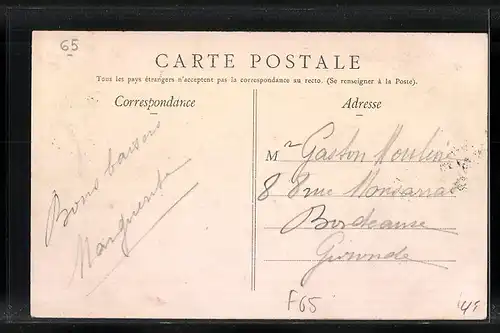 65
CARTE POSTALE
Tous les pays étrangers n'acceptent pas la correspondance au recto. (Se renseigner à la Poste).
Correspondance
Adresse
Bons baisers
Marguerite
Mr Gaston Moulinié
8 8 rue
Bordeaux
Gironde
F65